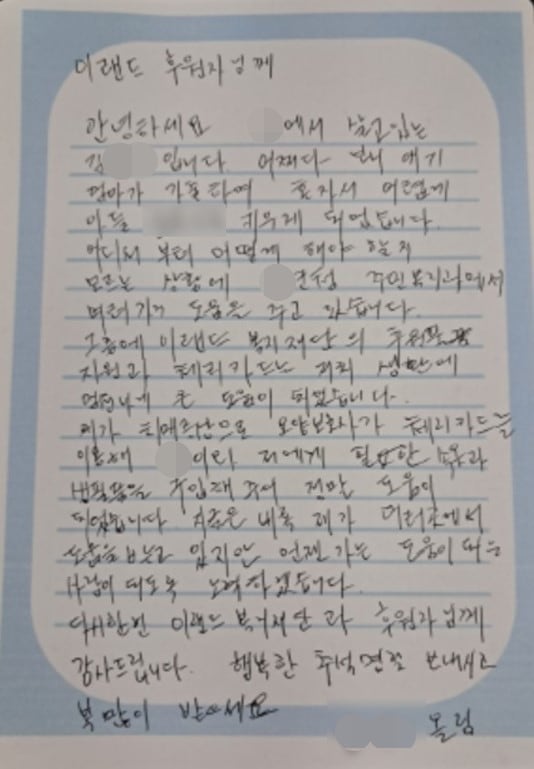 이랜드 후원자님께
안녕하세요 에서 살고있는
김 입니다. 어쩌다 보니 애기
엄마가 가출하여 혼자서 어렵게
아들 키우게 되었습니다.
어디서 부터 어떻게 해야 할지
모르는 상황에 군청 주민복지과에서
여러가지 도움을 주고 있습니다.
그중에 이랜드 복지재단의 후원물품
지원과 체리카드는 저희 생활에
엄청나게 큰 도움이 되었습니다.
제가 치매증상으로 요양보호사가 체리카드를
이용해 이와 저에게 필요한 속옷과
생필품을 구입해 주어 정말 도움이
되었습니다 지금은 비록 제가 여러곳에서
도움을 받고 있지만 언젠가는 도움이 되는
사람이 되도록 노력하겠습니다.
다시한번 이랜드 복지재단과 후원자님께
감사드립니다. 행복한 추석명절 보내시고
복 많이 받으세요
올림